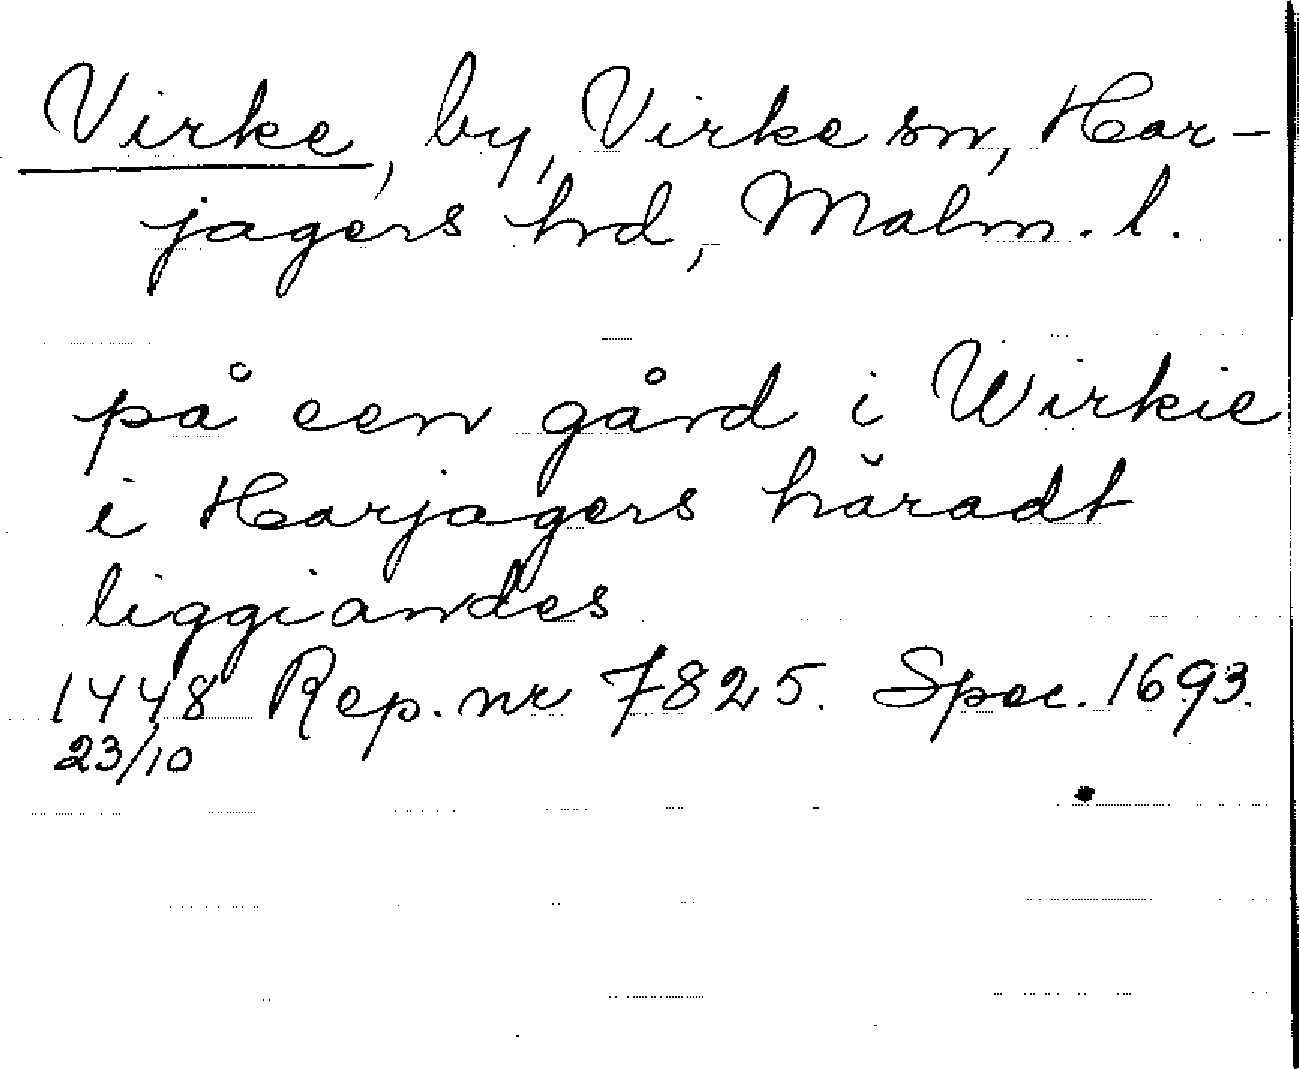 Virke, by, Virke sn, Har-
jagers hd, Malm. l.
på een gård i Wirkie
i Harjagers håradt
liggiandes
1448 Rep. nr 7825. Spec. 1693.
23/10